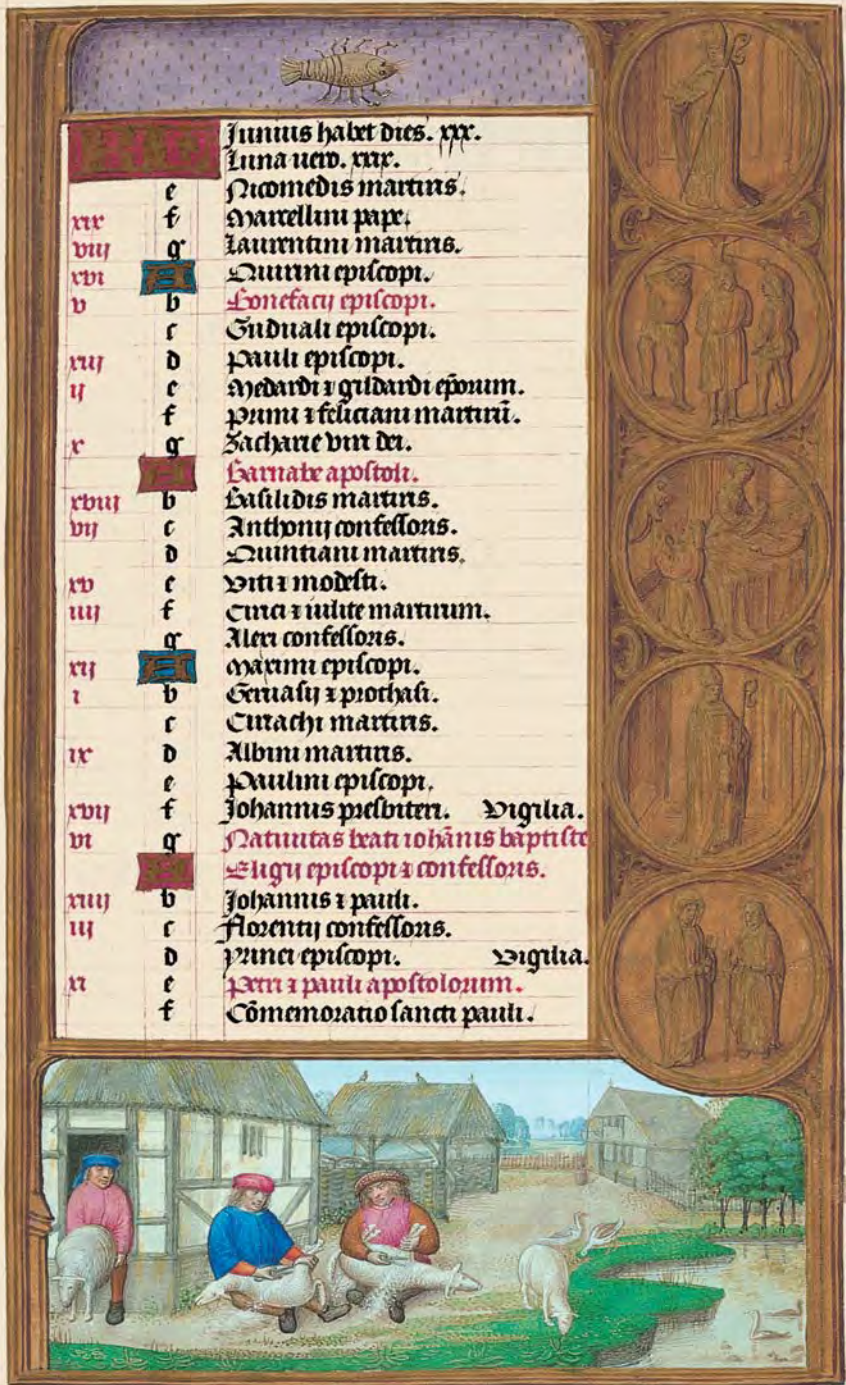 KL Junius habet dies. xxx.
Luna uero. xxix.
e Nicomedis martiris.
xix f Marcellini pape.
viij g Laurentini martiris.
xvi A Quirini episcopi.
v b Bonefacij episcopi.
c Guduali episcopi.
xiij d Pauli episcopi.
ij e Medardi ⁊ gildardi ep̄orum.
f Primi ⁊ feliciani martirū.
x g Zacharie viri dei.
A Barnabe apostoli.
xviij b Basilidis martiris.
vij c Anthonij confessoris.
d Quintiani martiris.
xv e Viti ⁊ modesti.
iiij f Cirici ⁊ iulite martirum.
g Alexi confessoris.
xij A Maximi episcopi.
i b Geruasij ⁊ prothasi.
c Ciriachi martiris.
ix d Albini martiris.
e Paulini episcopi.
xvij f Johannis presbiteri. Vigilia.
vi g Natiuitas beati iohānis baptiste
A Eligij episcopi ⁊ confessoris.
xiiij b Johannis ⁊ pauli.
iij c Florentij confessoris.
d episcopi. Vigilia.
xi e Petri ⁊ pauli apostolorum.
f Cōmemoratio sancti pauli.